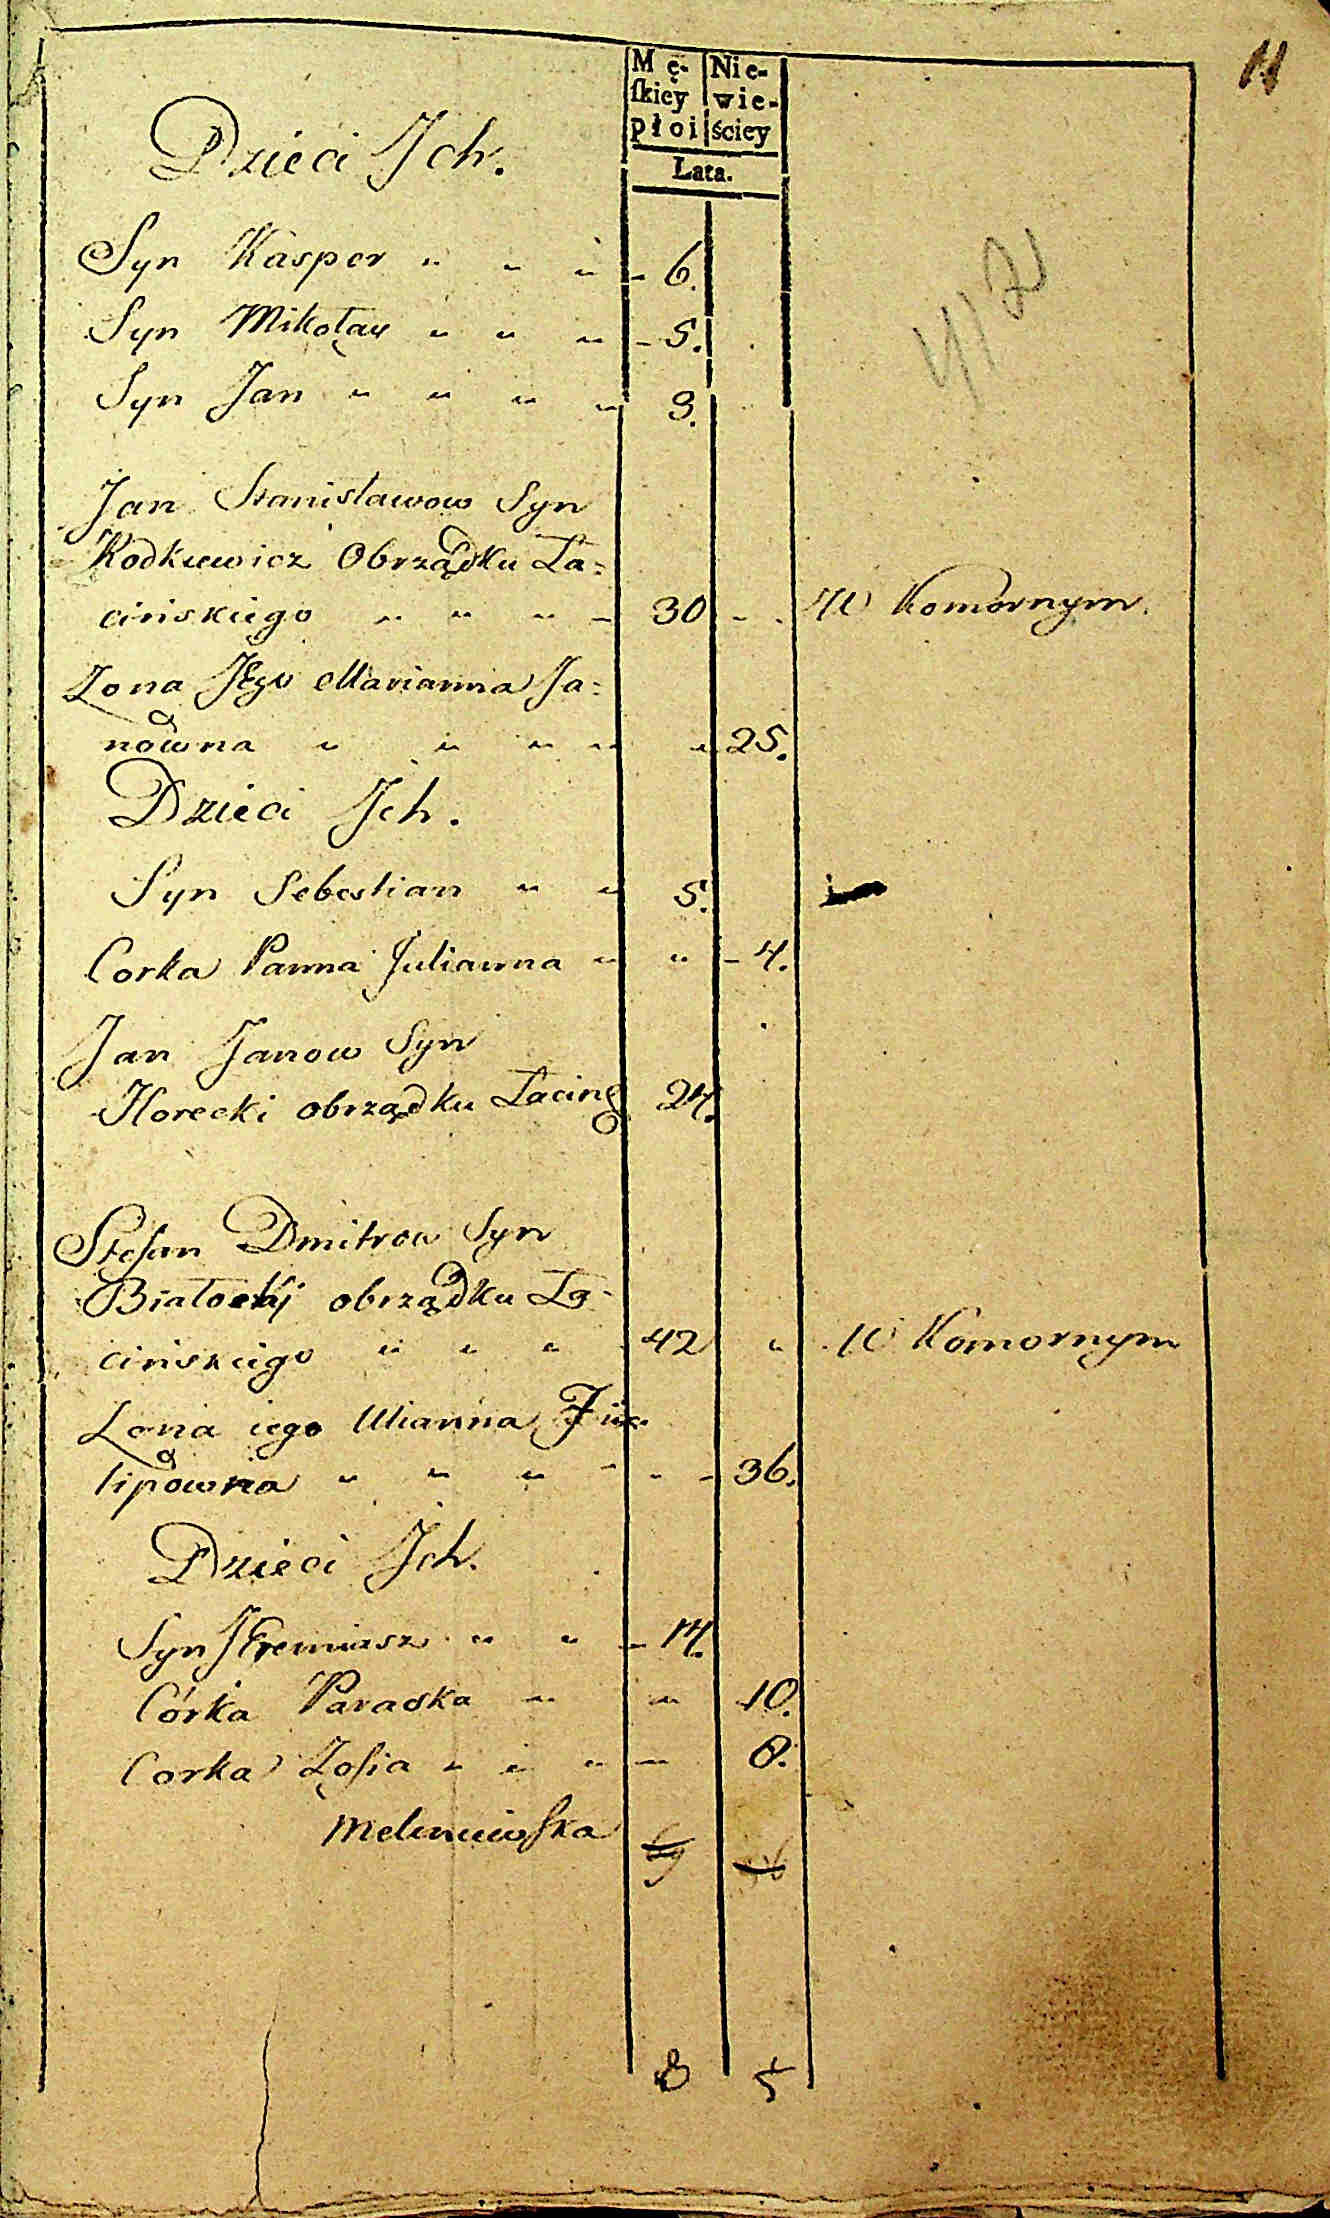 11
Mę- Nie-
skiey wie-
płci ściey
Lata.
Dzieci Jch.
Syn Kasper " " " - 6.
Syn Mikołay " " " - 5.
Syn Jan " " " " 3.
Jan Stanisławow Syn
Rodkiewicz Obrządku Ła=
cińskiego " " " - 30 - . W Komornym.
Żona Jego Marianna Ja=
nówna " " " " " 25.
Dzieci Jch.
Syn Sebestian " " 5.
Corka Panna Julianna " " - 4.
Jan Janow Syn
Horecki obrządku Łacing 24.
Stefan Dmitrow Syn
Białocki obrządku Ła-
cińskiego " " " 42 " W Komornym
Żona iego Ulianna Fi=
lipowna " " " - - - 36.
Dzieci Jch.
Syn Jeremiasz " " - 14.
Córka Paraska " " 10.
Corka Zofia " " " - 8.
8 5